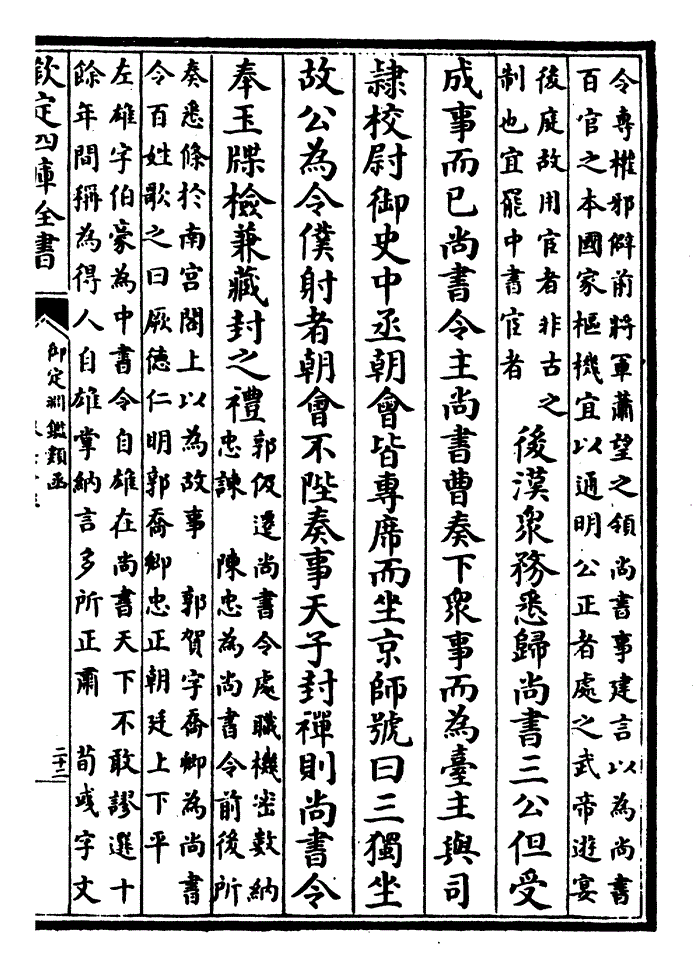 令專權邪僻前將軍蕭望之領尚書事建言以為尚書
百官之本國家樞機宜以通明公正者處之武帝遊宴
後庭故用宦者非古之
制也宜罷中書宦者
後漢衆務悉歸尚書三公但受
成事而已尚書令主尚書曹奏下衆事而為臺主與司
隷校尉御史中丞朝會皆專席而坐京師號曰三獨坐
故公為令僕射者朝會不陛奏事天子封禪則尚書令
奉玉牒檢兼藏封之禮
郭伋遷尚書令處職機密數納
忠諫 陳忠為尚書令前後所
奏悉條於南宮閣上以為故事 郭賀字喬卿為尚書
令百姓歌之曰厥德仁明郭喬卿忠正朝廷上下平
左雄字伯豪為中書令自雄在尚書天下不敢謬選十
餘年間稱為得人自雄掌納言多所正肅 荀彧字文
欽定四庫全書
御定淵鑑類函
二十二